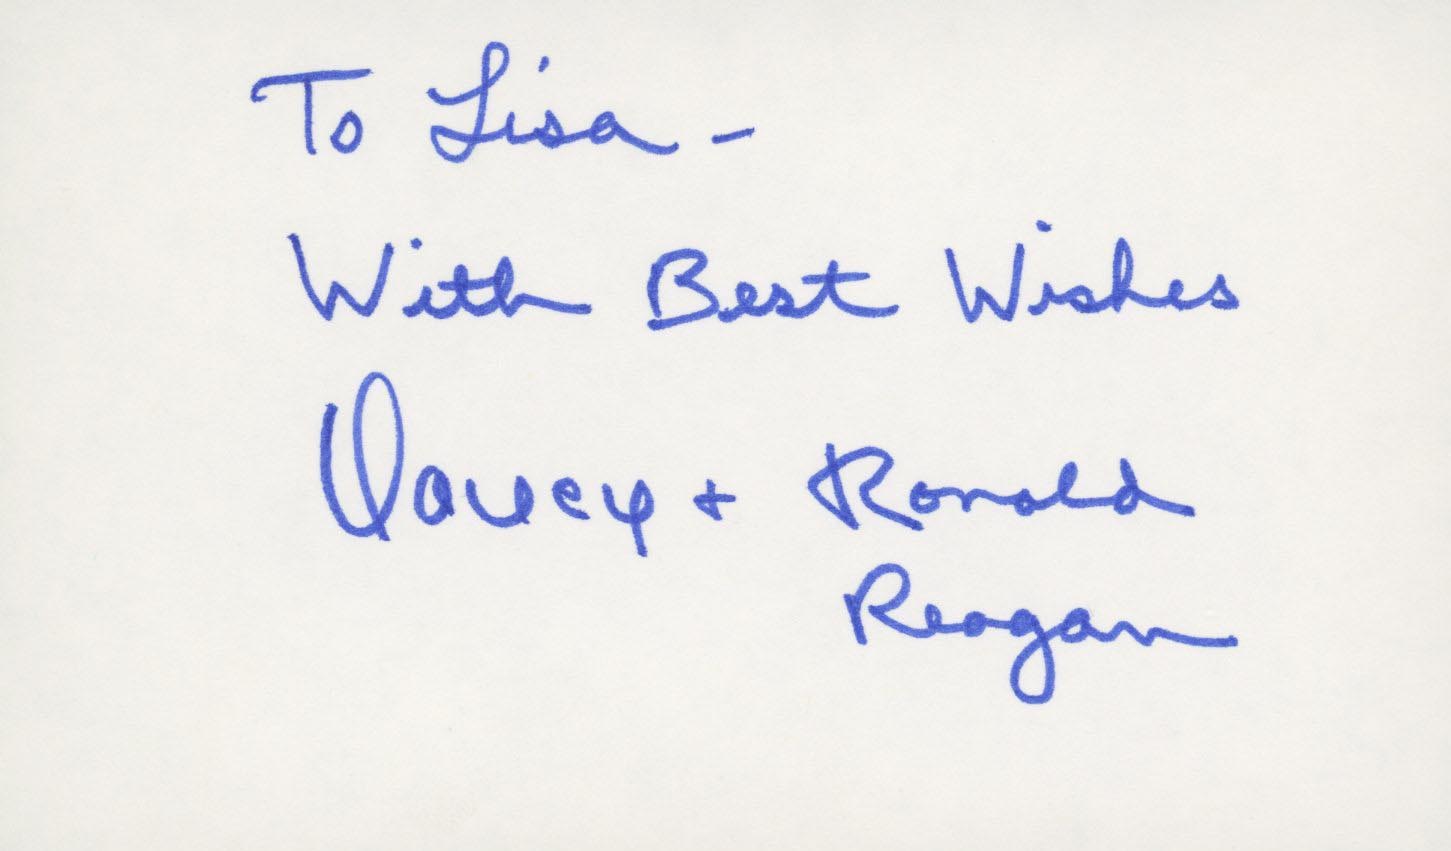 To Lisa -
With Best Wishes
Nancy + Ronald
Reagan